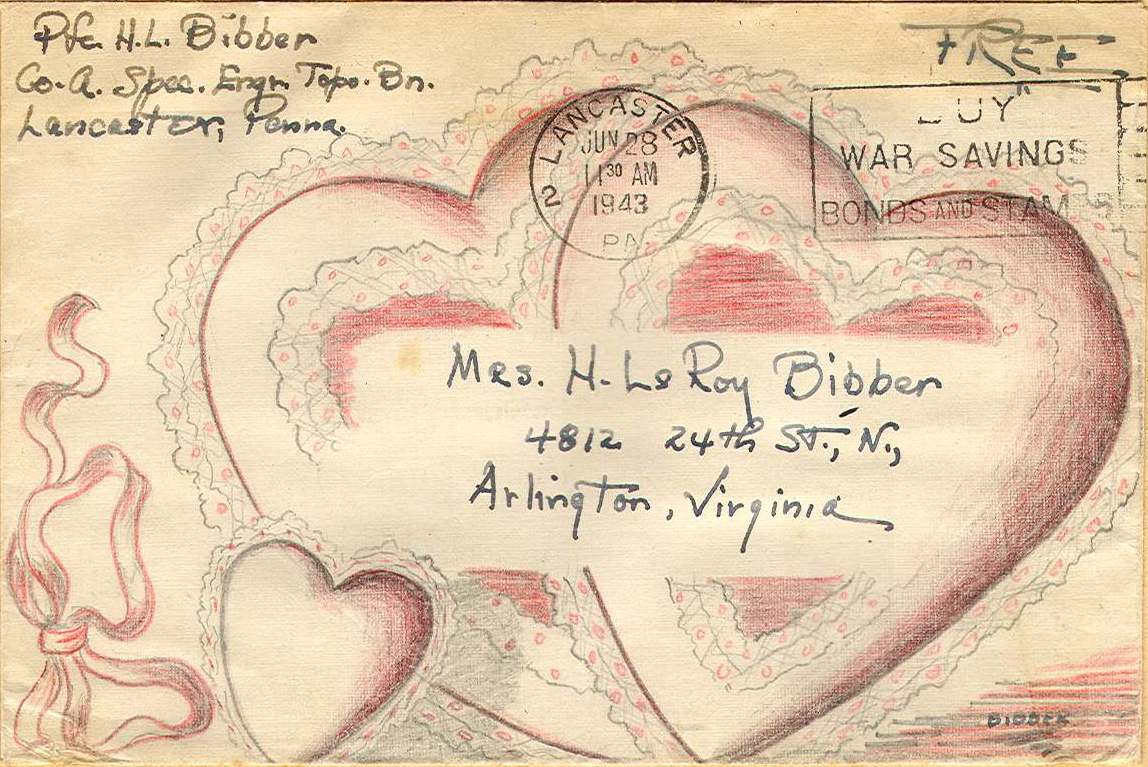 Pfc. H.L. Bibber
Co. A. Spec. Engr. Topo. Bn.
Lancaster, Penna.
FREE
LANCASTER
JUN 28
11 30 AM
1943
2
PA
BUY
WAR SAVINGS
BONDS AND STAMPS
Mrs. H. LeRoy Bibber
4812 24th St., N.,
Arlington, Virginia
BIBBER